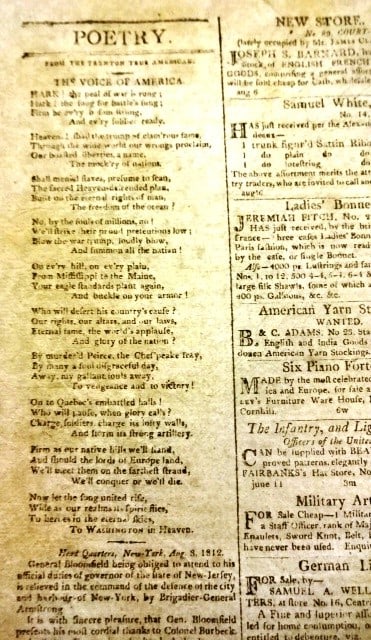 POETRY.
FROM THE TRENTON TRUE AMERICAN.
THE VOICE OF AMERICA.
HARK! the peal of war is rung;
Hark! the song for battle's sung;
Firm be ev'ry bosom strung,
And ev'ry soldier ready.
Heaven shall the trump of fame,
Through the wide world our wrongs proclaim,
Our boasted liberties, a name,
The mock'ry of nations.
Shall menial slaves, presume to fean,
The sacred Heavens extended plan,
Built on the eternal rights of man,
The freedom of the ocean?
No, by the souls of millions, no!
We'll strike their proud pretensions low;
Blow the war trump, loudly blow,
And summon all the nation!
On ev'ry hill, on ev'ry plain,
From Mississippi to the Maine,
Your eagle standards plant again,
And buckle on your armor!
Who will desert his country's cause?
Our rights, our altars, and our laws,
Eternal fame, the world's applause,
And glory of the nation?
By murder'd Peirce, the Chesapeake fray,
By many a foul disgraceful day,
Away, my gallant souls away.
To vengeance and to victory!
On to Quebec's embattled halls!
Who will pause, when glory calls?
Charge, soldiers, charge its lofty walls,
And storm its strong artillery.
Firm as our native hills we'll stand,
And should the lords of Europe land,
We'll meet them on the farthest strand,
We'll conquer or we'll die.
Now let the song united rise,
Wide as our realms its spirit flies,
To heroes in the eternal skies,
To WASHINGTON in Heaven.
Head Quarters, New-York, Aug. 8, 1812.
General Bloomfield being obliged to attend to his
official duties of governor of the state of New-Jersey,
is relieved in the command of the defence of the city
and harbour of New-York, by Brigadier-General
Armstrong
It is with sincere pleasure, that Gen. Bloomfield
presents his most cordial thanks to Colonel Burbeck.
NEW STORE.
No. 80, COURT
(lately occupied by Mr.
JOSEPH S. BARNARD,
stock of ENGLISH FRENCH
GOODS, comprising a general assort
will be sold cheap for Cash,
aug 6
Samuel White,
No. 14,
HAS just received per the
dozen—
1 trunk figur'd Sattin Ribb
1 do plain do do
1 do lutestring do
The above assortment merits the
try traders, who are invited to call
aug
Ladies' Bonne
JEREMIAH FITCH, No.
HAS just received, by the
france—three cases Ladies' Bonne
Paris fashion, which is now read
by the case, or single Bonnet.
Also—4000 ps Lustrings and
Nos. 1, to 12, 500 4-4, 5-4, 6-4
large silk Shawls, some of which
400 ps. Galloons, &c. &c.
American Yarn St
WANTED.
B & C. ADAMS, No 25, Sta
English and India Goods
dozen American Yarn Stockings.
Six Piano Fort
MADE by the most celebrated
sica and Europe, for sale
LEY's Furniture Ware House,
Cornhill. 6w
The Infantry, and Lig
Officers of the Unite
CAN be supplied with BEA
proved patterns, elegantly
FAIRBANKS's Hat Store, No
june 11 3m
Military Ar
FOR Sale Cheap—1 Milit
a Staff Officer, rank of Maj
Epaulets, Sword Knot, Belt,
have never been used. Enqui
German Li
FOR Sale, by—
SAMUEL A. WELL
TERS, at store No. 16,
A Fine and superior
led for home consumption,
entitled to debenture, viz.